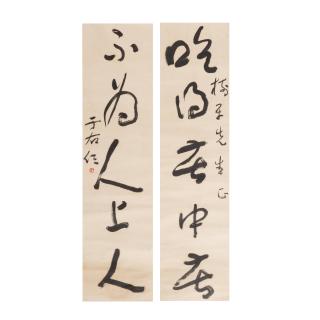 平先生正
吃得苦中苦
不為人上人
于右任